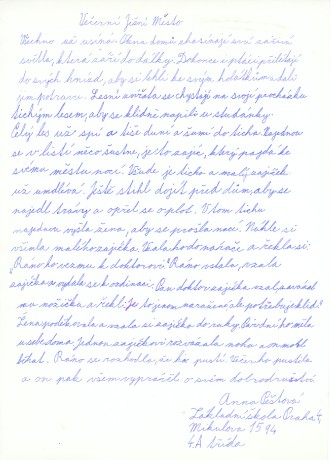 Večerní Jižní Město
Všechno už usíná. Okna domů zhasínají svá noční
světla, která září do dálky. Dokonce i ptáci přilétají
do svých hnízd, aby se lehli ke svým holátkům a dali
jim potravu. Lesní zvířata se chystají na svoji procházku
tichým lesem, aby se klidně napili u studánky.
Celý les už spí a tiše duní a šumí do ticha. Najednou
se v listí něco šustne, je to zajíc, který najde ke
svému městu nocí. Všude je ticho a malý zajíček
už umdlévá. Ještě stihl dojít před dům, aby se
najedl trávy a opřel se o plot. V tom tichu
najednou vyšla žena, aby se prošla nocí. Náhle si
všimla malého zajíčka. Vzala ho do náruče a řekla si:
„Ráno ho vezmu k doktorovi." Ráno vstala, vzala
zajíčka a vydala se k ordinaci. Pan doktor zajíčka vzal, zavázal
mu nožičku a řekl: je to jenom naražené, ale potřebuje klid."
Žena poděkovala a vzala si zajíčka do ruky. Pár dní ho měla
u sebe doma. Jednou zajíčkovi rozvázala nohu a on mohl
běhat. Ráno se rozhodla, že ho pustí. Večer ho pustila
a on pak všem vyprávěl o svém dobrodružství.
Anna Čestová
Základní škola Praha 4,
Mikulova 1594
4.A třída